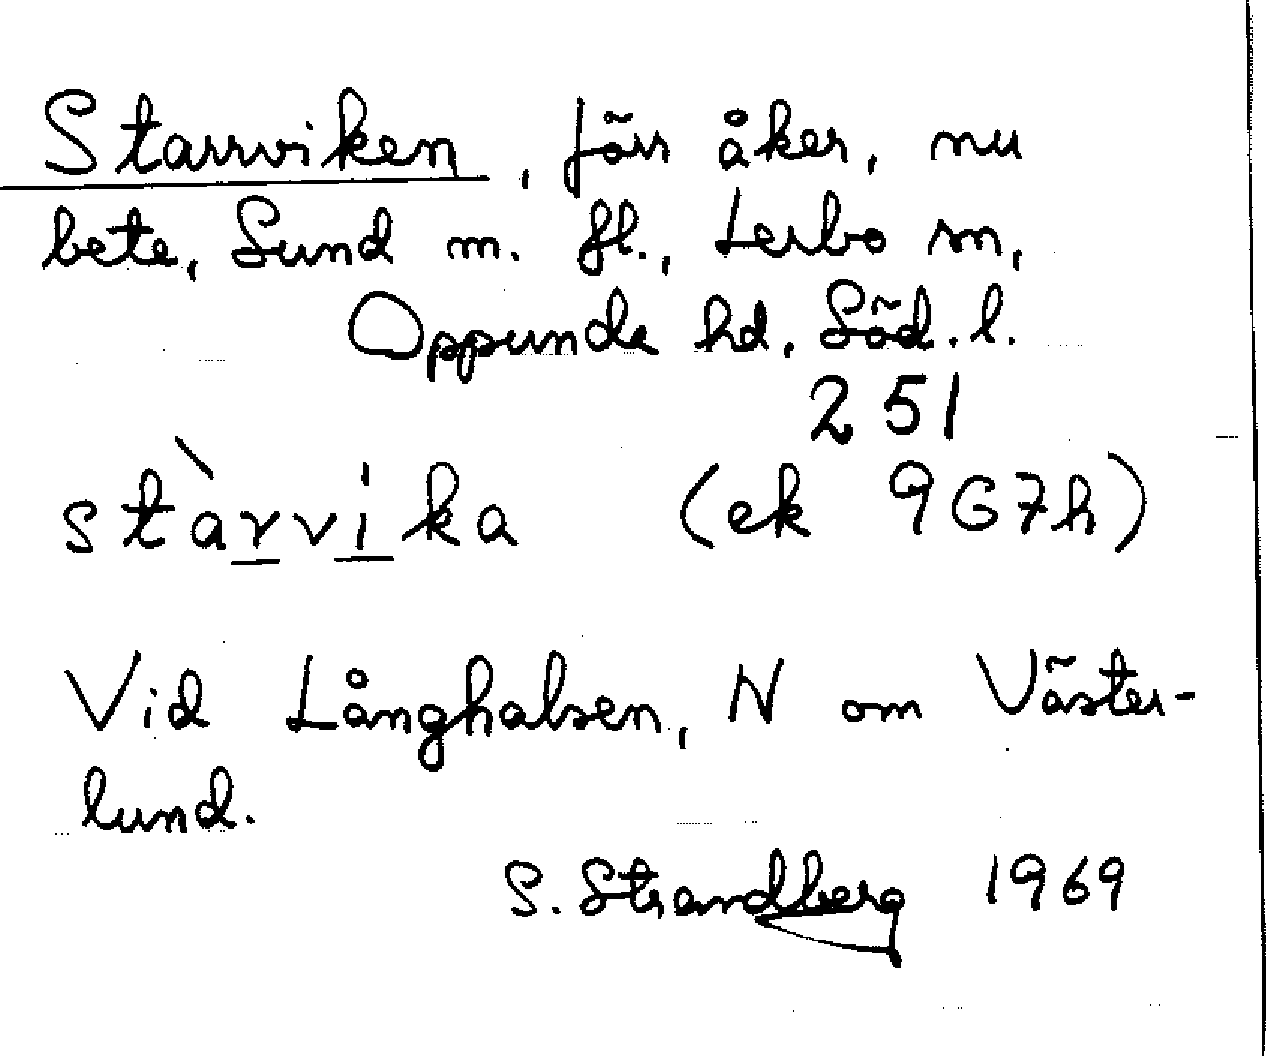 Starrviken, förr åker, nu
bete, Sund m. fl., Lerbo sn,
Oppunda hd. Söd. l.
251
stàrvika (ek 9G7h)
Vid Långhalsen, N om Väster-
lund.
S. Strandberg 1969